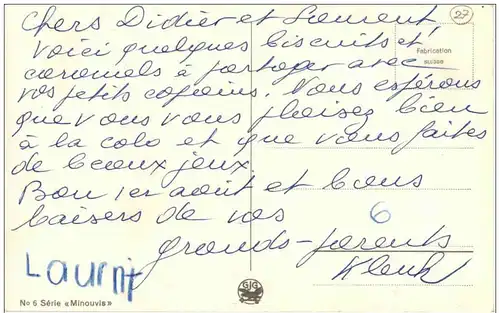 Chers Didier et Laurent,
27
voici quelques biscuits et
Fabrication
suisse
caramels à partager avec
vos petits copains. Nous espérons
que vous vous plaisez bien
à la colo et que vous faites
de beaux jeux.
Bon 1er août et bons
baisers de vos
6
grands-parents
Laurnt
GJG
No 6 Série «Minouvis»